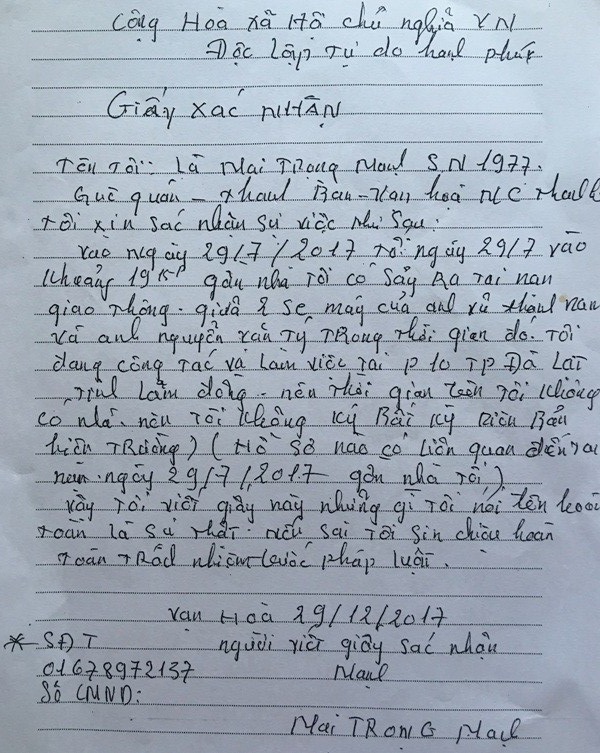 Cộng Hoà xã Hộ chủ nghĩa VN
Độc Lập Tự do hanh phúc
Giấy xác NHẬN
Tên tôi: là Mai TRọng Mạnh SN 1977.
Quê quán - thanh Ban - Vạn hoà NC thanh
tôi xin sác nhận sự việc như sau:
vào ngày 29/7/2017 tối ngày 29/7 vào
khoảng 19 gần nhà tôi có sảy Ra tai nạn
giao thông. giữa 2 se máy của anh vũ thành nam
và anh nguyễn văn Tý TRong thời gian đó. Tôi
đang công tác và làm việc tại P 10 TP Đà Lạt
Tỉnh Lâm đồng. nên thời gian trên tôi không
có nhà. nên tôi không ký Bất kỳ Biên Bản
hiện TRường) (Hồ sơ nào có liên quan đến tai
nạn. ngày 29/7/2017 gần nhà tôi)
vậy tôi viết giấy này những gì tôi nói trên hoàn
toàn là sự thật. nếu sai tôi sin chiụ hoàn
toàn TRách nhiệm trước pháp luật.
vạn Hoà 29/12/2017
* SĐT người viết giấy sác nhận
01678972137 Mạnh
Số CMND:
Mai TRONG Mạnh